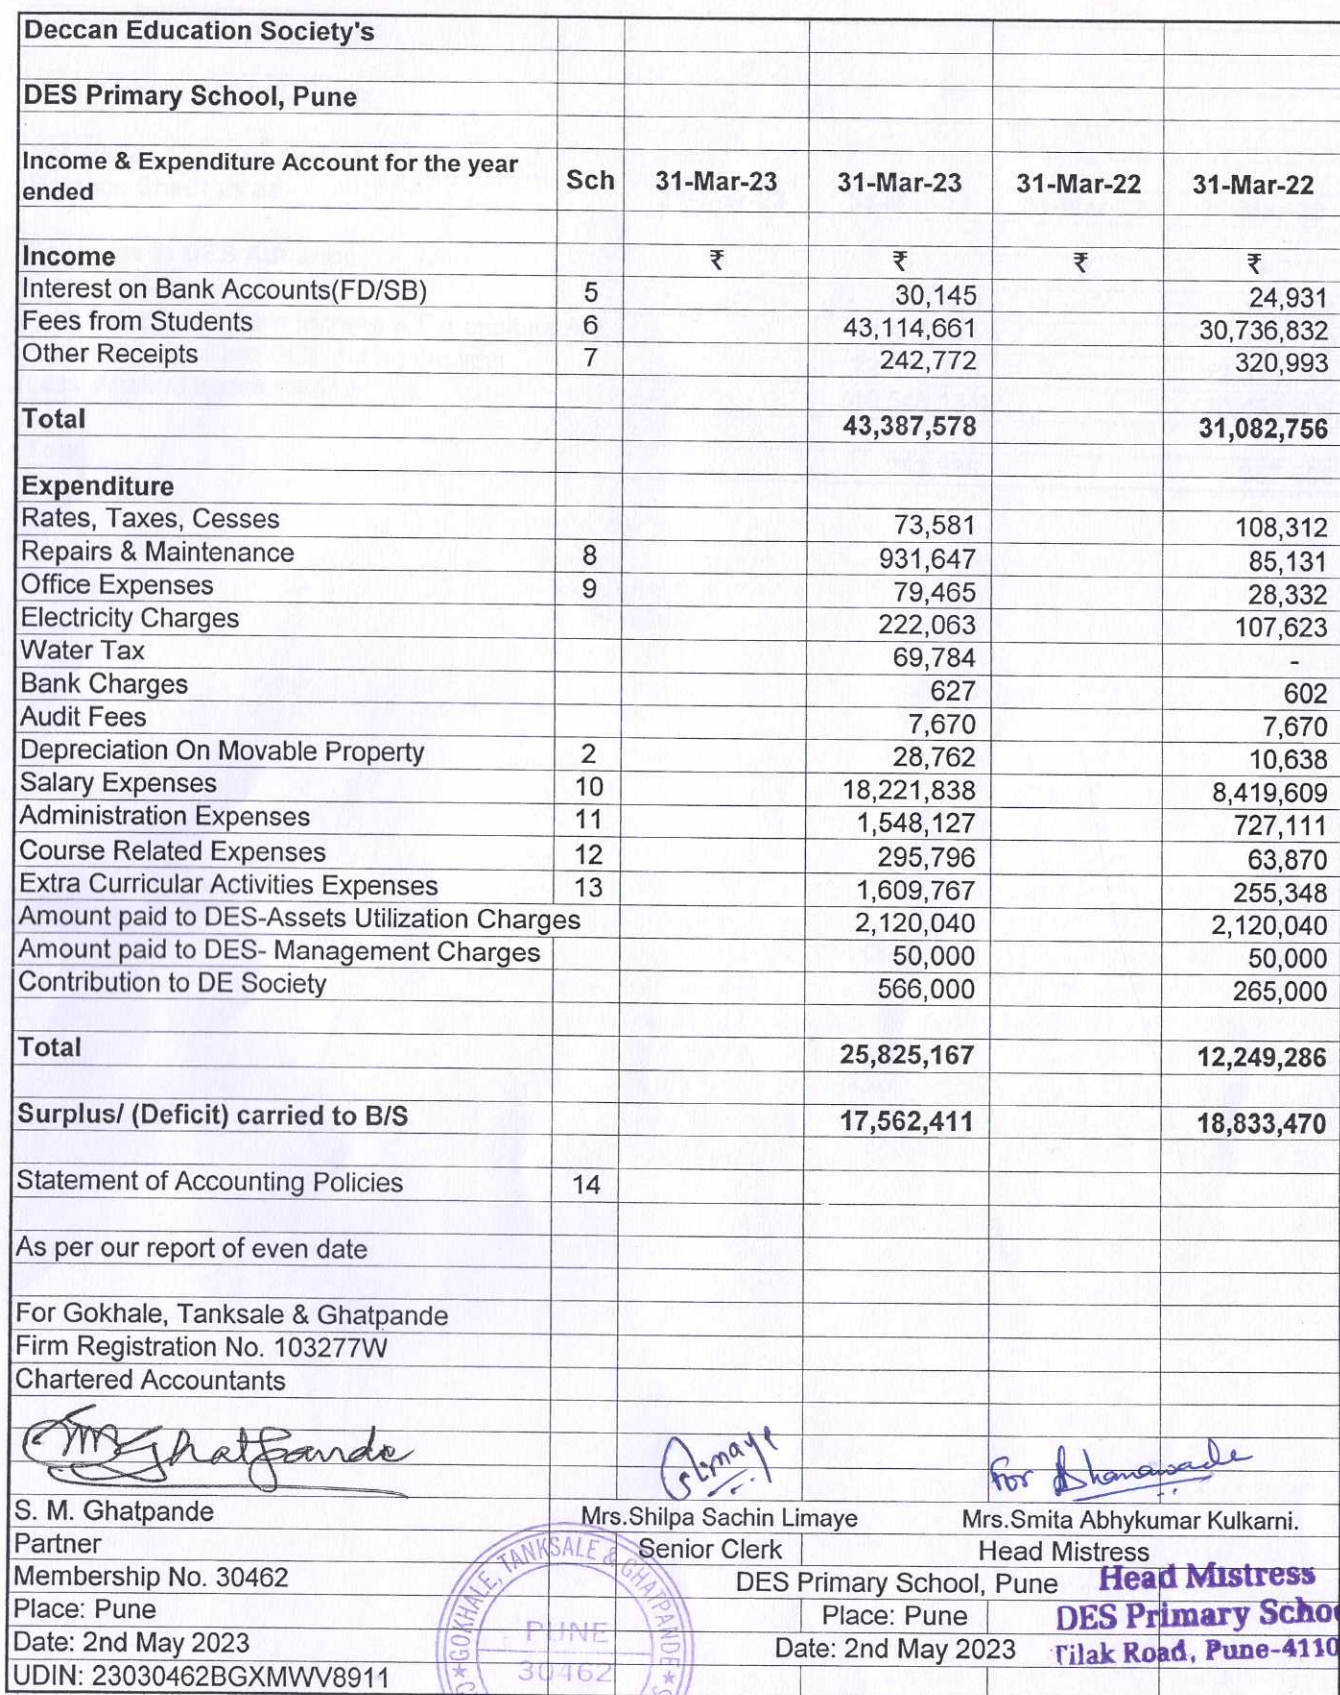 Deccan Education Society's
DES Primary School, Pune
Income & Expenditure Account for the year ended Sch 31-Mar-23 31-Mar-23 31-Mar-22 31-Mar-22
Income ₹ ₹ ₹ ₹
Interest on Bank Accounts(FD/SB) 5 30,145 24,931
Fees from Students 6 43,114,661 30,736,832
Other Receipts 7 242,772 320,993
Total 43,387,578 31,082,756
Expenditure
Rates, Taxes, Cesses 73,581 108,312
Repairs & Maintenance 8 931,647 85,131
Office Expenses 9 79,465 28,332
Electricity Charges 222,063 107,623
Water Tax 69,784 -
Bank Charges 627 602
Audit Fees 7,670 7,670
Depreciation On Movable Property 2 28,762 10,638
Salary Expenses 10 18,221,838 8,419,609
Administration Expenses 11 1,548,127 727,111
Course Related Expenses 12 295,796 63,870
Extra Curricular Activities Expenses 13 1,609,767 255,348
Amount paid to DES-Assets Utilization Charges 2,120,040 2,120,040
Amount paid to DES- Management Charges 50,000 50,000
Contribution to DE Society 566,000 265,000
Total 25,825,167 12,249,286
Surplus/ (Deficit) carried to B/S 17,562,411 18,833,470
Statement of Accounting Policies 14
As per our report of even date
For Gokhale, Tanksale & Ghatpande
Firm Registration No. 103277W
Chartered Accountants
SMGhatpande SLimaye For Bhanawade
S. M. Ghatpande Mrs.Shilpa Sachin Limaye Mrs.Smita Abhykumar Kulkarni.
Partner Senior Clerk Head Mistress
Membership No. 30462 DES Primary School, Pune
Place: Pune Place: Pune
Date: 2nd May 2023 Date: 2nd May 2023
UDIN: 23030462BGXMWV8911
GOKHALE, TANKSALE & GHATPANDE
PUNE
30462
Head Mistress
DES Primary Schoo
Tilak Road, Pune-4110